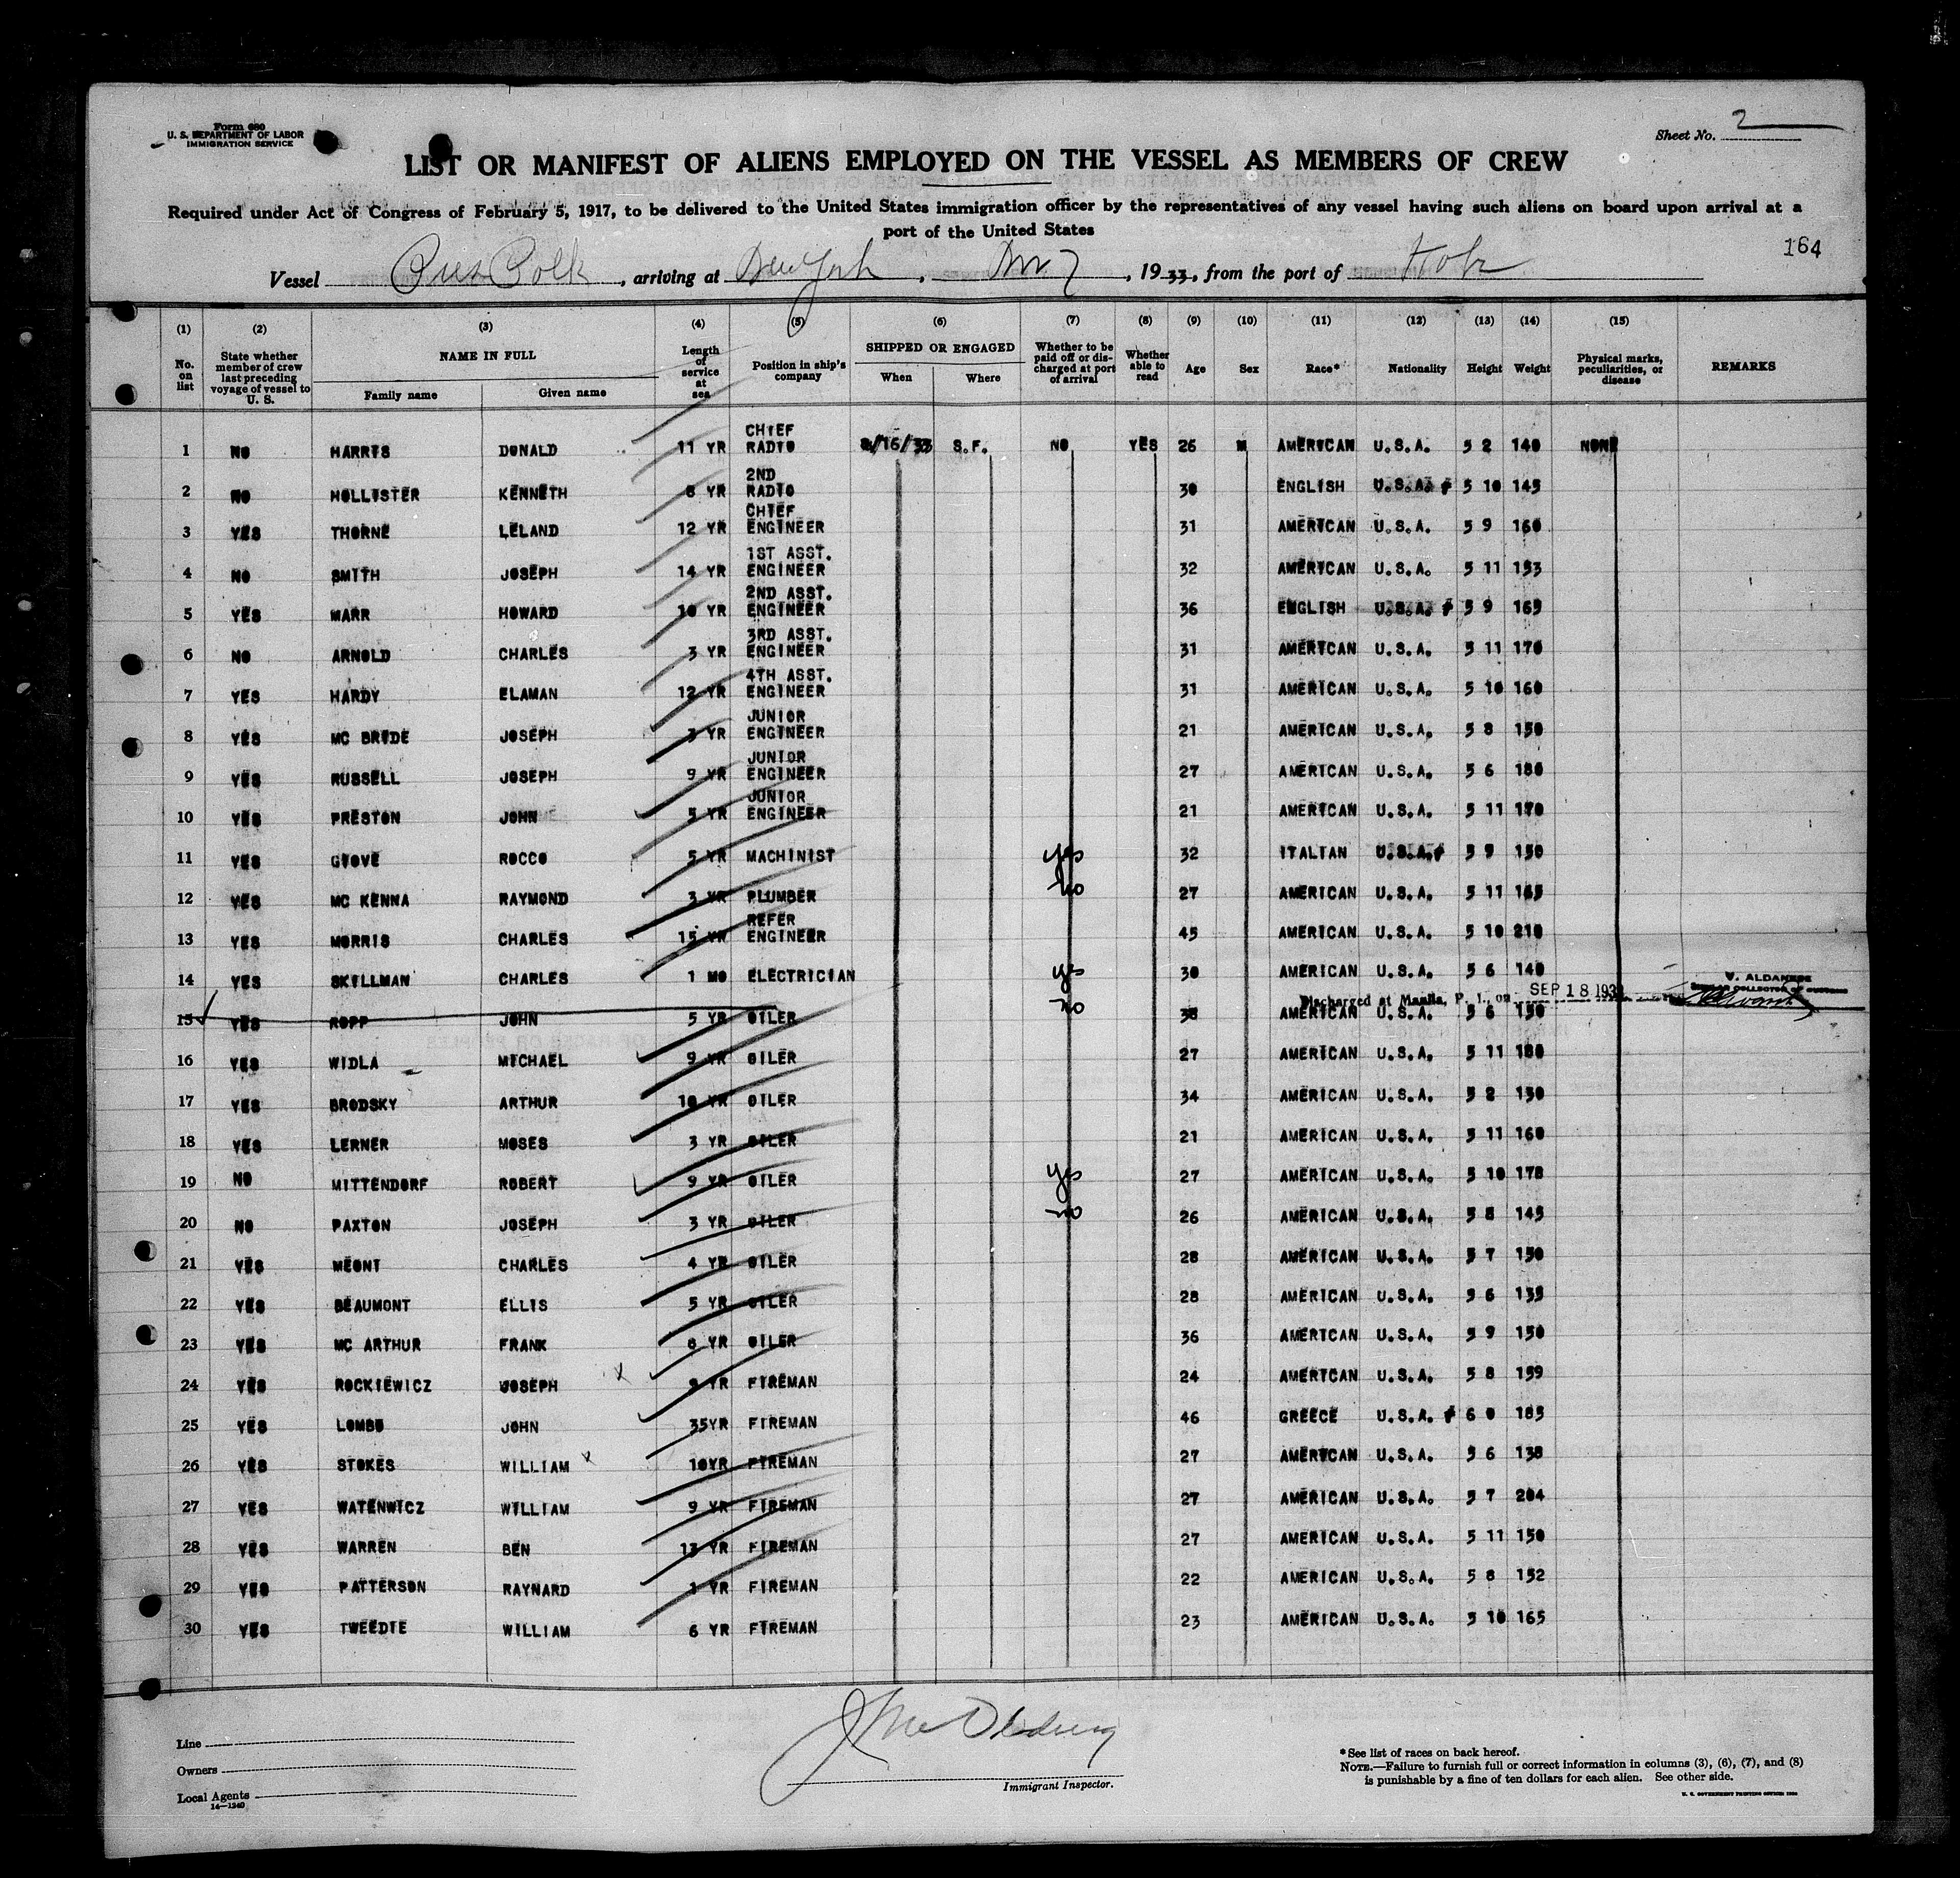 Form 680
U. S. DEPARTMENT OF LABOR
IMMIGRATION SERVICE
Sheet No. 2
LIST OR MANIFEST OF ALIENS EMPLOYED ON THE VESSEL AS MEMBERS OF CREW
Required under Act of Congress of February 5, 1917, to be delivered to the United States immigration officer by the representatives of any vessel having such aliens on board upon arrival at a
port of the United States
164
Vessel Pres Polk, arriving at New York, Nov. 7, 1933, from the port of Kobe
(1) (2) (3) (4) (5) (6) (7) (8) (9) (10) (11) (12) (13) (14) (15)
No. on list
State whether member of crew last preceding voyage of vessel to U. S.
NAME IN FULL
Family name
Given name
Length of service at sea
Position in ship's company
SHIPPED OR ENGAGED
When
Where
Whether to be paid off or discharged at port of arrival
Whether able to read
Age
Sex
Race*
Nationality
Height
Weight
Physical marks, peculiarities, or disease
REMARKS
1 NO HARRIS DONALD 11 YR CHIEF RADIO 8/16/33 S.F. NO YES 26 M AMERICAN U.S.A. 5 2 140 NONE
2 NO HOLLISTER KENNETH 8 YR 2ND RADIO 30 ENGLISH U.S.A. 5 10 145
3 YES THORNE LELAND 12 YR CHIEF ENGINEER 31 AMERICAN U.S.A. 5 9 160
4 NO SMITH JOSEPH 14 YR 1ST ASST. ENGINEER 32 AMERICAN U.S.A. 5 11 153
5 YES MARR HOWARD 10 YR 2ND ASST. ENGINEER 36 ENGLISH U.S.A. 5 9 165
6 NO ARNOLD CHARLES 3 YR 3RD ASST. ENGINEER 31 AMERICAN U.S.A. 5 11 170
7 YES HARDY ELAMAN 12 YR 4TH ASST. ENGINEER 31 AMERICAN U.S.A. 5 10 160
8 YES MC BRIDE JOSEPH 3 YR JUNIOR ENGINEER 21 AMERICAN U.S.A. 5 8 150
9 YES RUSSELL JOSEPH 9 YR JUNIOR ENGINEER 27 AMERICAN U.S.A. 5 6 180
10 YES PRESTON JOHN 5 YR JUNIOR ENGINEER 21 AMERICAN U.S.A. 5 11 170
11 YES GIOVE ROCCO 5 YR MACHINIST yes 32 ITALIAN U.S.A. 5 9 150
12 YES MC KENNA RAYMOND 3 YR PLUMBER no 27 AMERICAN U.S.A. 5 11 165
13 YES MORRIS CHARLES 15 YR REFER ENGINEER 45 AMERICAN U.S.A. 5 10 210
14 YES SKILLMAN CHARLES 1 MO ELECTRICIAN yes 30 AMERICAN U.S.A. 5 6 140
Discharged at Manila, P. I., on SEP 18 193 V. ALDANESE
INSULAR COLLECTOR OF CUSTOMS
15 YES ROPP JOHN 5 YR OILER no 38 AMERICAN U.S.A. 5 6 150
16 YES WIDLA MICHAEL 9 YR OILER 27 AMERICAN U.S.A. 5 11 180
17 YES BRODSKY ARTHUR 10 YR OILER 34 AMERICAN U.S.A. 5 2 130
18 YES LERNER MOSES 3 YR OILER 21 AMERICAN U.S.A. 5 11 160
19 NO MITTENDORF ROBERT 9 YR OILER yes 27 AMERICAN U.S.A. 5 10 178
20 NO PAXTON JOSEPH 3 YR OILER no 26 AMERICAN U.S.A. 5 8 145
21 YES MEONT CHARLES 4 YR OILER 28 AMERICAN U.S.A. 5 7 150
22 YES BEAUMONT ELLIS 5 YR OILER 28 AMERICAN U.S.A. 5 6 135
23 YES MC ARTHUR FRANK 6 YR OILER 36 AMERICAN U.S.A. 5 9 150
24 YES ROCKIEWICZ JOSEPH 9 YR FIREMAN 24 AMERICAN U.S.A. 5 8 159
25 YES LOMBU JOHN 35YR FIREMAN 46 GREECE U.S.A. 6 0 185
26 YES STOKES WILLIAM 10YR FIREMAN 27 AMERICAN U.S.A. 5 6 138
27 YES WATENWICZ WILLIAM 9 YR FIREMAN 27 AMERICAN U.S.A. 5 7 204
28 YES WARREN BEN 13 YR FIREMAN 27 AMERICAN U.S.A. 5 11 150
29 YES PATTERSON RAYNARD 1 YR FIREMAN 22 AMERICAN U.S.A. 5 8 152
30 YES TWEEDIE WILLIAM 6 YR FIREMAN 23 AMERICAN U.S.A. 5 10 165
Line
Owners
Local Agents
14—1240
Immigrant Inspector.
*See list of races on back hereof.
NOTE.—Failure to furnish full or correct information in columns (3), (6), (7), and (8)
is punishable by a fine of ten dollars for each alien. See other side.
U. S. GOVERNMENT PRINTING OFFICE